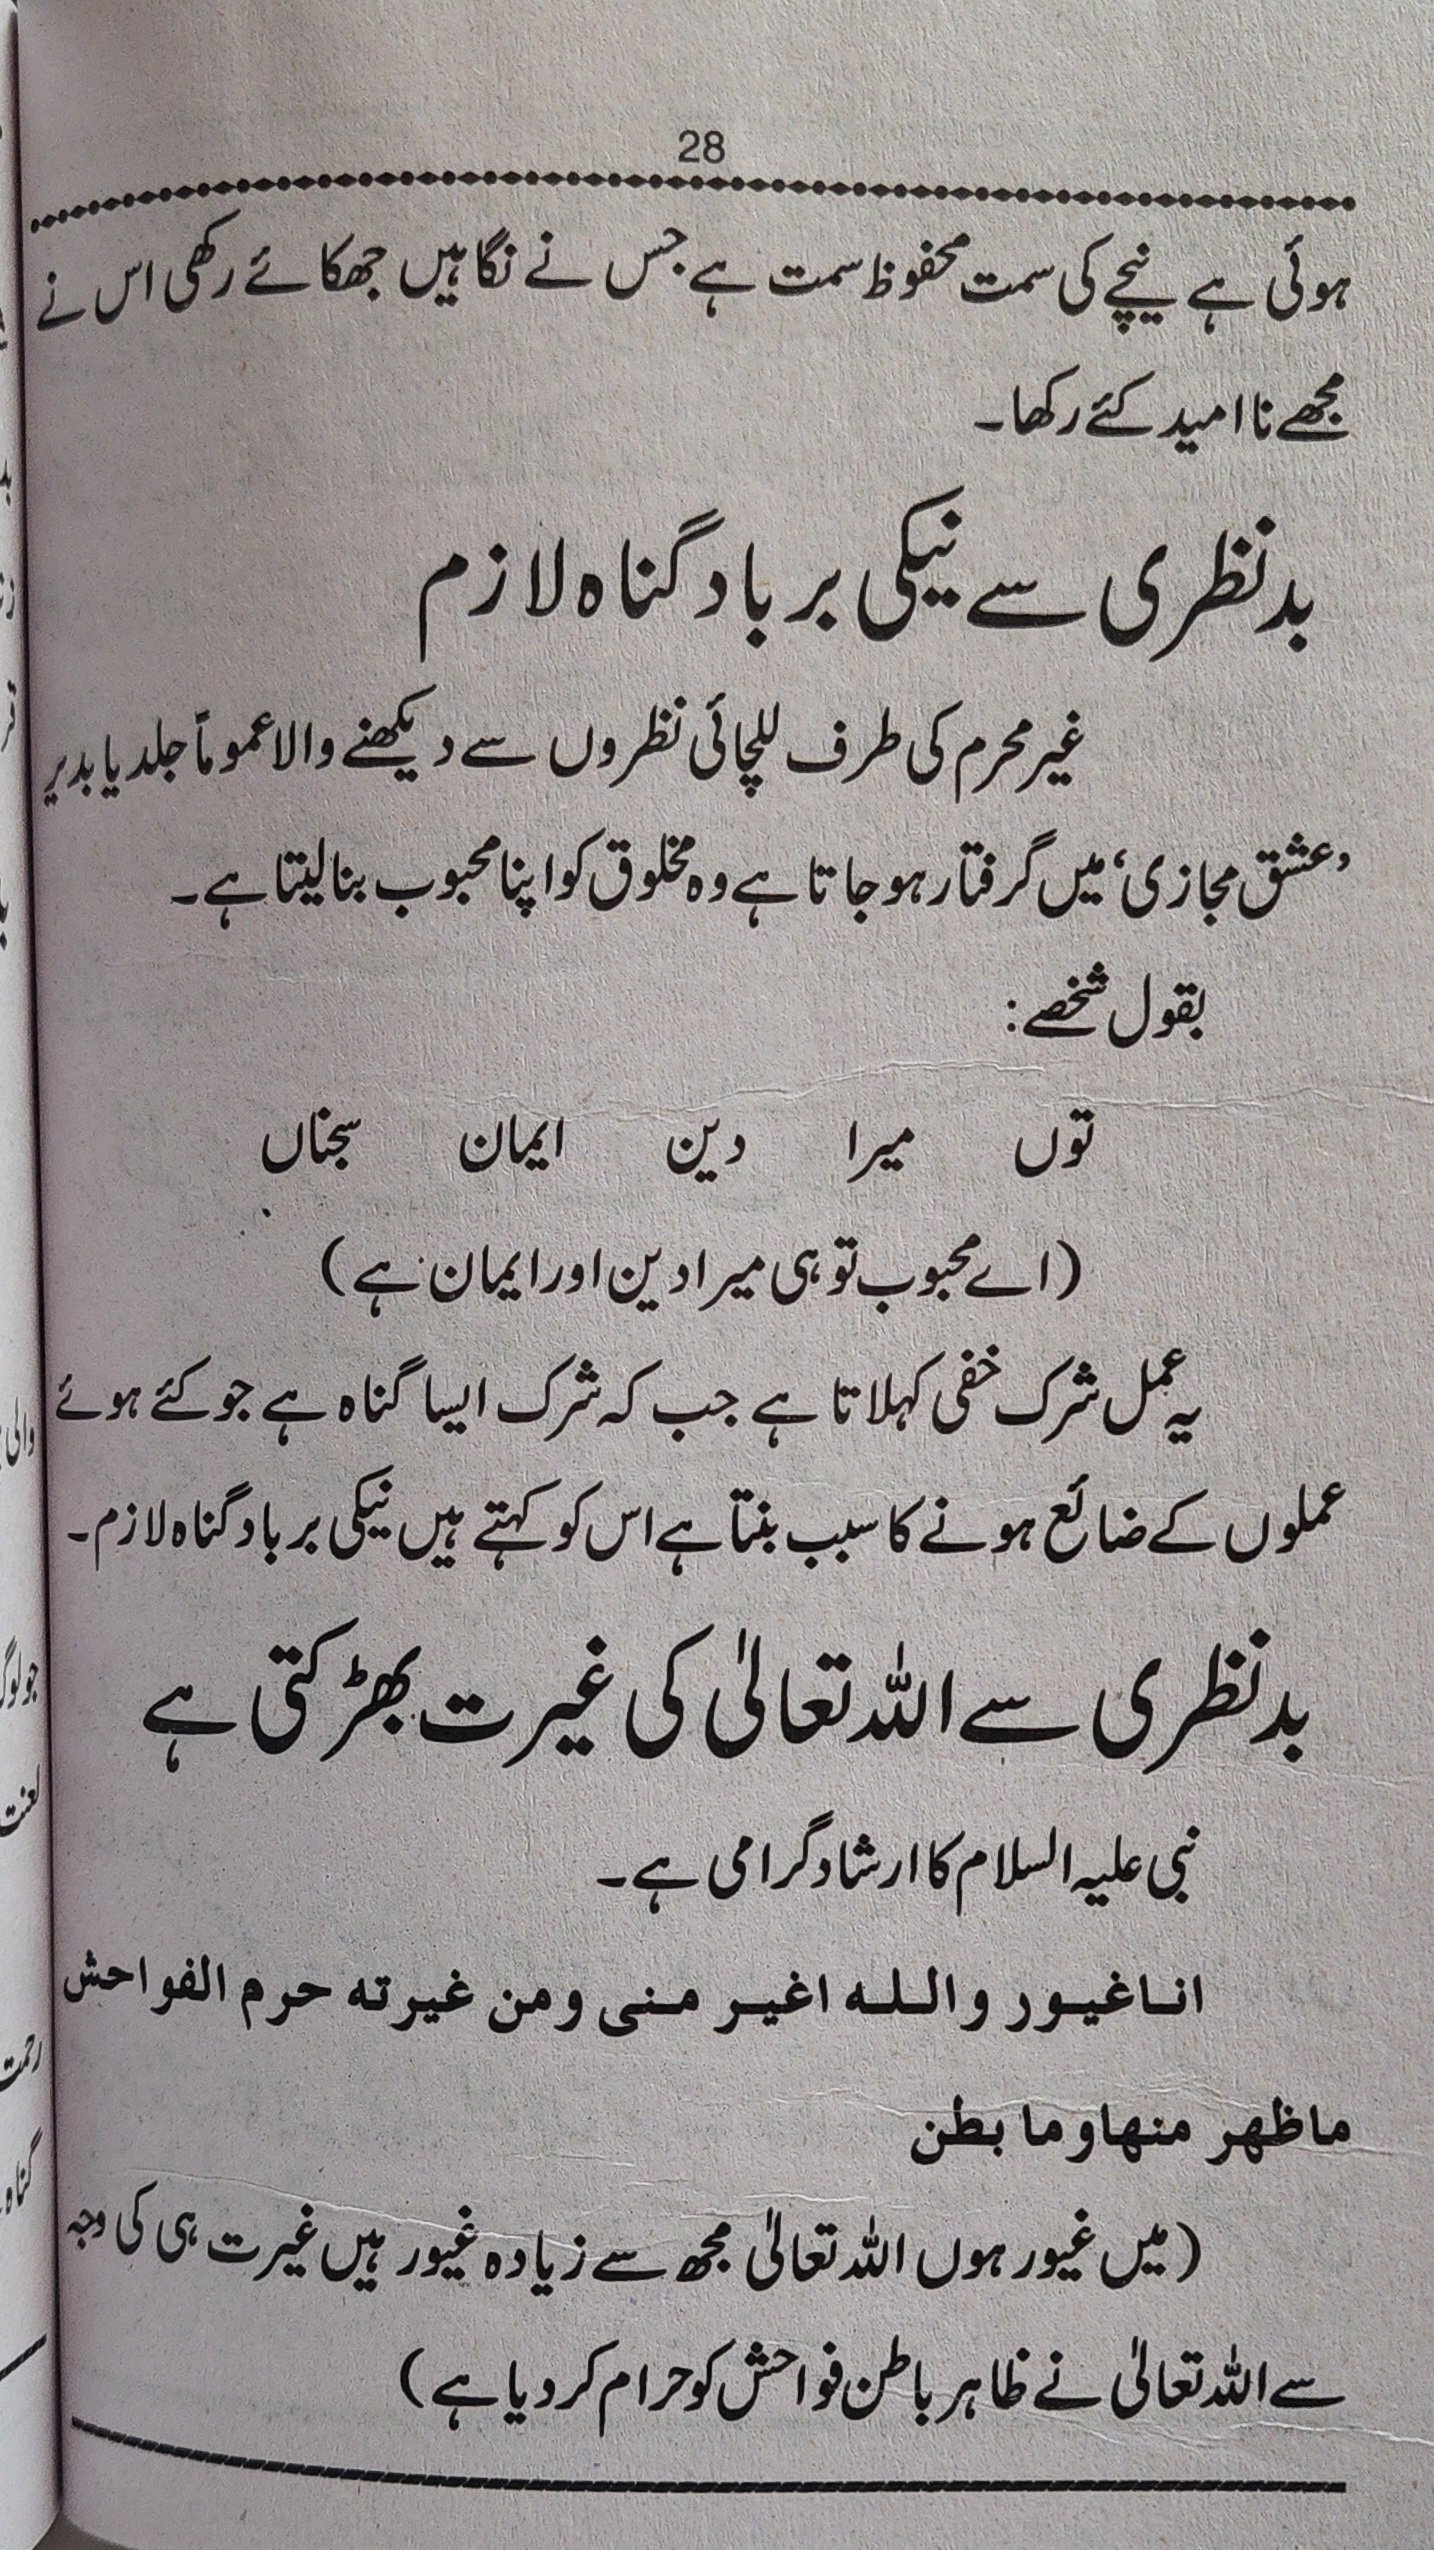 28
ہوئی ہے نیچے کی سمت محفوظ سمت ہے جس نے نگاہیں جھکائے رکھی اس نے
مجھے نا امید کئے رکھا۔
بدنظری سے نیکی برباد گناہ لازم
غیر محرم کی طرف للچائی نظروں سے دیکھنے والا عموماً جلد یا بدیر
’عشق مجازی‘ میں گرفتار ہو جاتا ہے وہ مخلوق کو اپنا محبوب بنا لیتا ہے۔
بقول شخصے:
توں میرا دین ایمان سجناں
(اے محبوب تو ہی میرا دین اور ایمان ہے)
یہ عمل شرک خفی کہلاتا ہے جب کہ شرک ایسا گناہ ہے جو کئے ہوئے
عملوں کے ضائع ہونے کا سبب بنتا ہے اس کو کہتے ہیں نیکی برباد گناہ لازم۔
بدنظری سے اللہ تعالیٰ کی غیرت بھڑکتی ہے
نبی علیہ السلام کا ارشاد گرامی ہے۔
انا غیور واللہ اغیر منی ومن غیرته حرم الفواحش
ماظهر منها وما بطن
(میں غیور ہوں اللہ تعالیٰ مجھ سے زیادہ غیور ہیں غیرت ہی کی وجہ
سے اللہ تعالیٰ نے ظاہر باطن فواحش کو حرام کر دیا ہے)